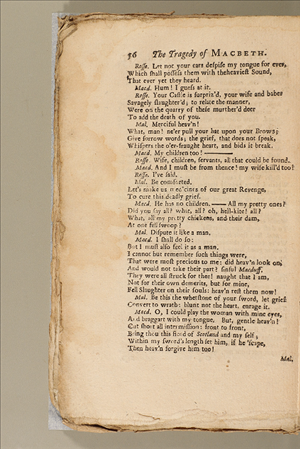 56 The Tragedy of MACBETH.
Rosse. Let not your ears despise my tongue for ever,
Which shall possess them with the heaviest Sound,
That ever yet they heard.
Macd. Hum! I guess at it.
Rosse. Your Castle is surpris'd, your wife and babes
Savagely slaughter'd; to relate the manner,
Were on the quarry of these murther'd deer
To add the death of you.
Mal. Merciful heav'n!
What, man! ne'er pull your hat upon your Brows;
Give sorrow words; the grief, that does not speak,
Whispers the o'er-fraught heart, and bids it break.
Macd. My children too! —
Rosse. Wife, children, servants, all that could be found.
Macd. And I must be from thence! my wife kill'd too!
Rosse. I've said.
Mal. Be comforted.
Let's make us med'cines of our great Revenge,
To cure this deadly grief.
Macd. He has no children. — All my pretty ones?
Did you say all? what, all? oh, hell-kite! all?
What, all my pretty chickens, and their dam,
At one fell swoop?
Mal. Dispute it like a man.
Macd. I shall do so:
But I must also feel it as a man.
I cannot but remember such things were,
That were most precious to me: did heav'n look on,
And would not take their part? sinful Macduff,
They were all struck for thee! naught that I am,
Not for their own demerits, but for mine,
Fell Slaughter on their souls: heav'n rest them now!
Mal. Be this the whetstone of your sword, let grief
Convert to wrath: blunt not the heart, enrage it.
Macd. O, I could play the woman with mine eyes,
And braggart with my tongue. But, gentle heav'n!
Cut short all intermission: front to front,
Bring thou this fiend of Scotland and my self;
Within my sword's length set him, if he 'scape,
Then heav'n forgive him too!
Mal.